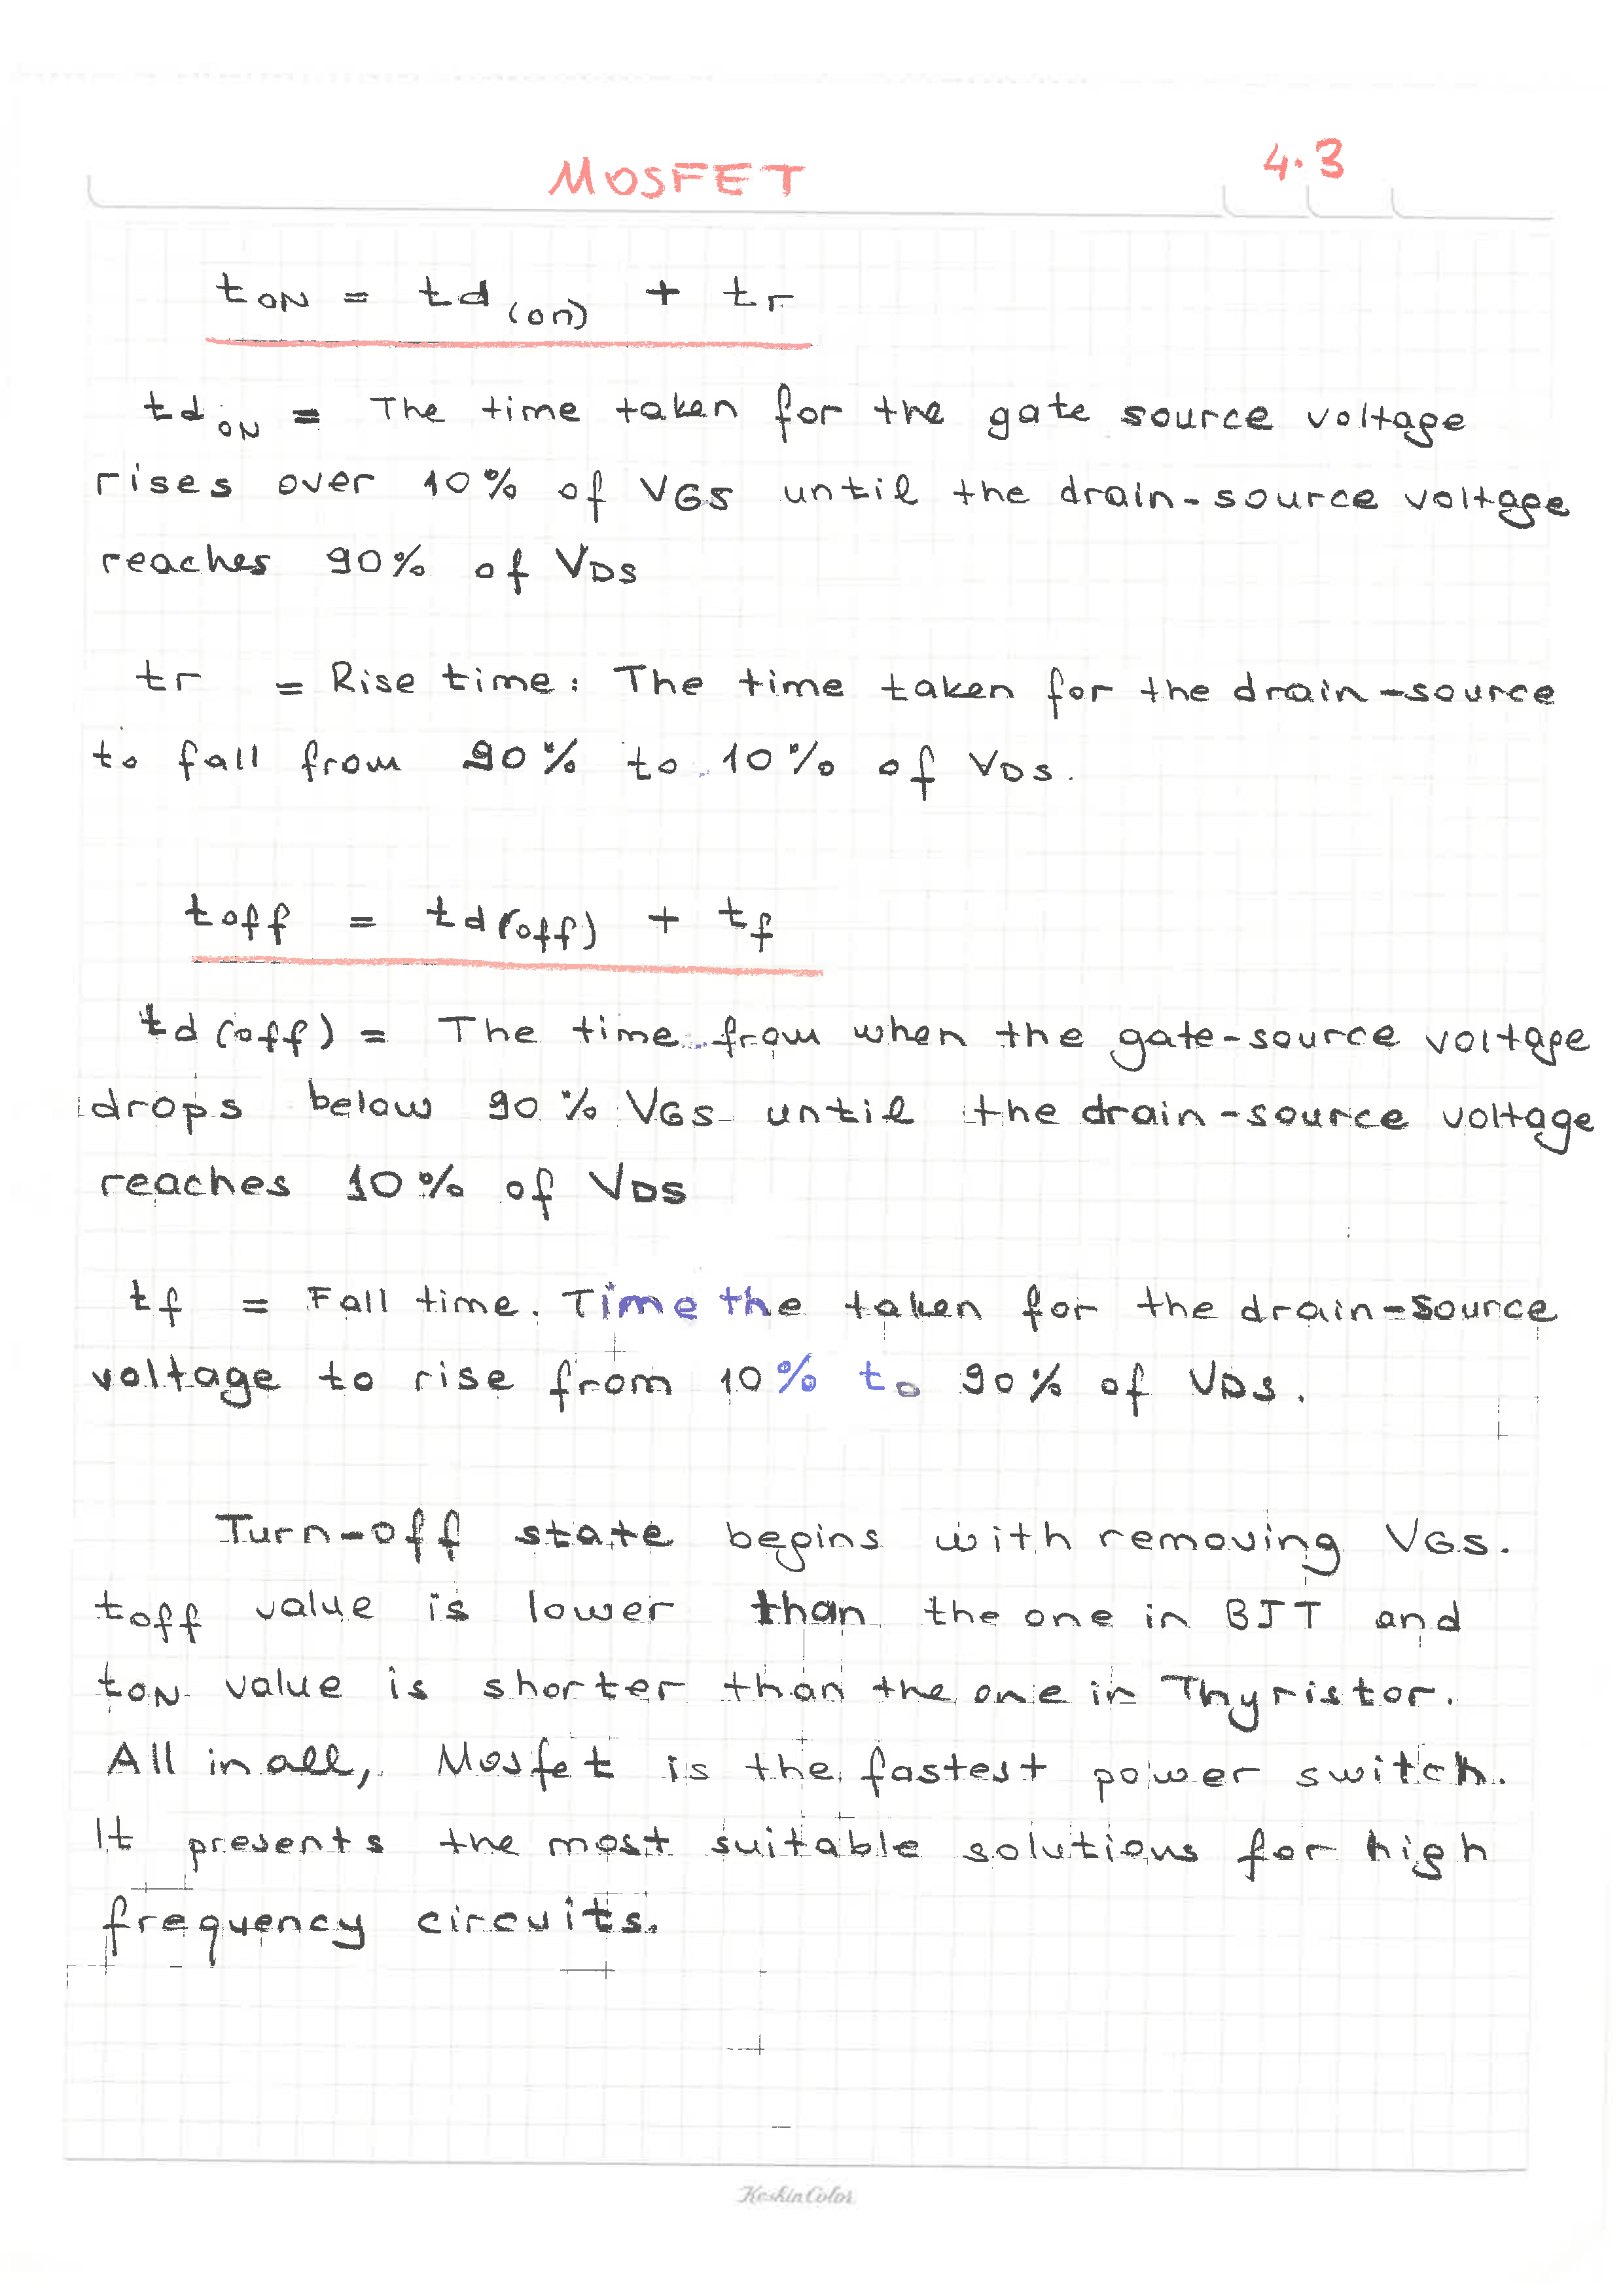 MOSFET 4.3
tON = td(on) + tr
tdON = The time taken for the gate source voltage
rises over 10% of VGS until the drain-source voltage
reaches 90% of VDS
tr = Rise time: The time taken for the drain-source
to fall from 90% to 10% of VDS.
toff = td(off) + tf
td(off) = The time from when the gate-source voltage
drops below 90% VGS until the drain-source voltage
reaches 10% of VDS
tf = Fall time. Time the taken for the drain-source
voltage to rise from 10% to 90% of VDS.
Turn-off state begins with removing VGS.
toff value is lower than the one in BJT and
tON value is shorter than the one in Thyristor.
All in all, Mosfet is the fastest power switch.
It presents the most suitable solutions for high
frequency circuits.
KeskinColor